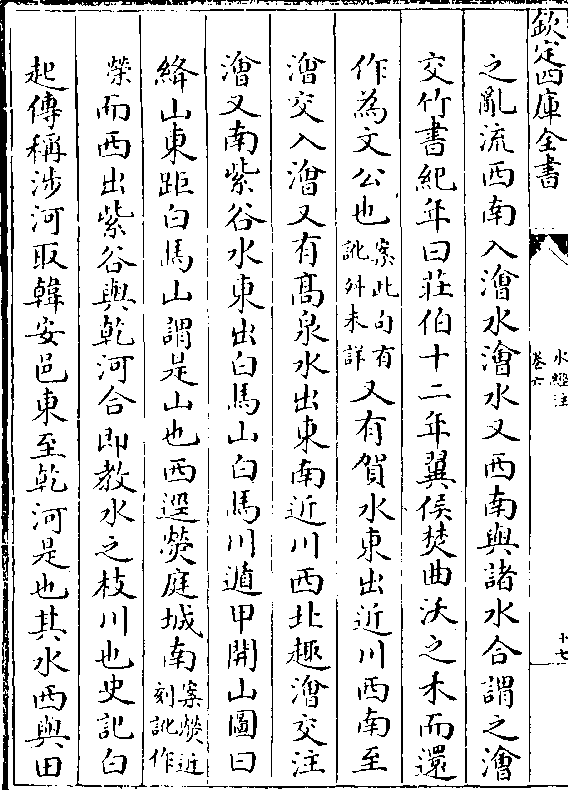 欽定四庫全書
水經注
卷六
十七
之亂流西南入澮水澮水又西南與諸水合謂之澮
交竹書紀年曰莊伯十二年翼侯焚曲沃之禾而還
作為文公也案此句有訛舛未詳又有賀水東出近川西南至
澮交入澮又有高泉水出東南近川西北趣澮交注
澮又南紫谷水東出白馬山白馬川遁甲開山圖曰
絳山東距白馬山謂是山也西逕熒庭城南案熒近刻訛作
榮而西出紫谷與乾河合即教水之枝川也史記白
起傳稱涉河取韓安邑東至乾河是也其水西與田